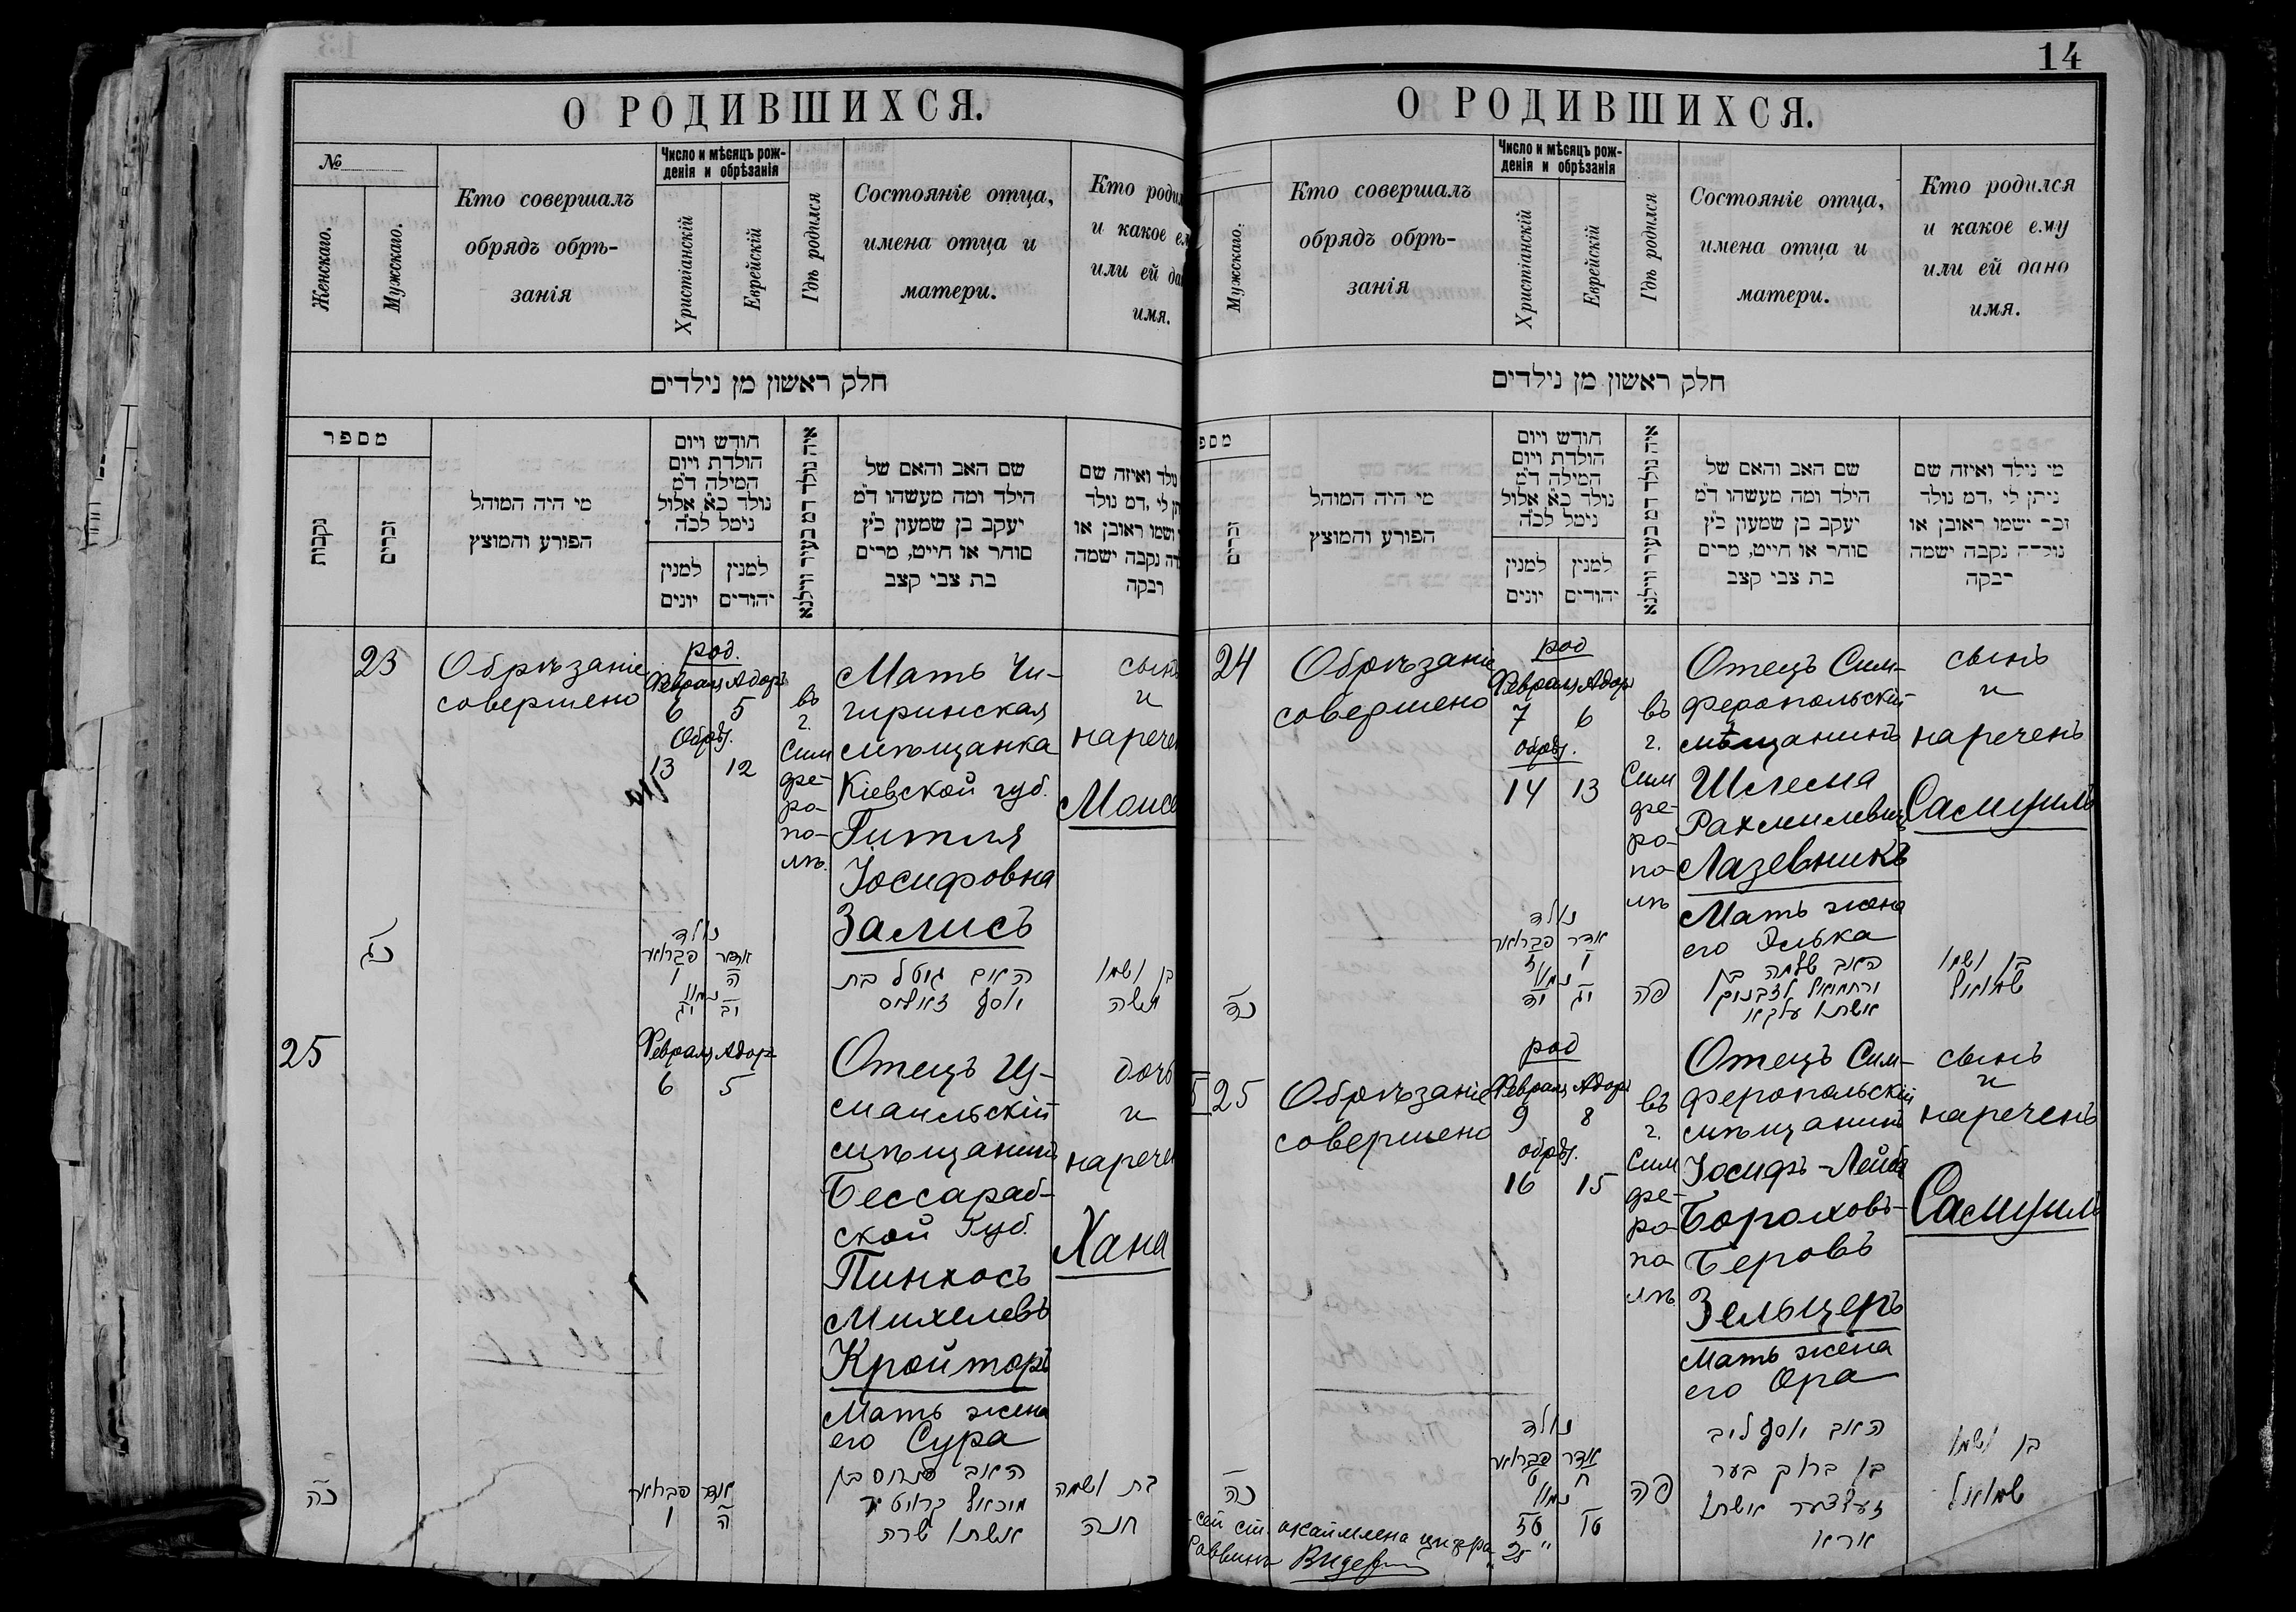 О РОДИВШИХСЯ.
№
Женскаго.
Мужскаго.
Кто совершалъ
обрядъ обрѣ-
занія
Число и мѣсяцъ рож-
денія и обрѣзанія
Христіанскій
Еврейскій
Гдѣ родился
Состояніе отца,
имена отца и
матери.
Кто
и какое
или ей
имя.
חלק ראשון מן נילדים
מספר
נקבות
זכרים
מי היה המוהל
הפורע והמוצץ
חודש ויום
הולדת ויום
המילה ד״מ
נולד בא׳ אלול
נימל לכ״ה
למנין
יונים
למנין
יהודים
איה נולד דמ בעיר ווילנא
שם האב והאם של
הילד ומה מעשהו ד״מ
יעקב בן שמעון כ״ץ
סוחר או חייט, מרים
בת צבי קצב
נולד ואיזה שם
לי, דמ נולד
ושמו ראובן או
נקבה ישמה
רבקה
23
Обрѣзаніе
совершено
род.
Феврал Адор
6 5
Обрѣз.
13 12
въ
г.
Сим
фе-
ро-
по-
лѣ.
Мать Чи-
гиринская
мѣщанка
Кіевской губ.
Гитля
Іосифовна
Залисъ
сынъ
и
нарече
Моисе
כג
נולד
פברואר אדר
ו ה
נמול
יג יב
האם גיטל בת
יוסף זאליס
בן ושמו
משה
25
Феврал Адор
6 5
Отецъ Из-
маильскій
мѣщанинъ
Бессараб-
ской Губ.
Пинхосъ
Михелевъ
Кройторъ
Мать жена
его Сура
дочь
и
нарече
Хана
כה
פברואר אדר
ו ה
האב פנחס בן
מיכאל קרויטר
אשתו שרה
בת ושמה
חנה
14
О РОДИВШИХСЯ.
Мужскаго.
Кто совершалъ
обрядъ обрѣ-
занія
Число и мѣсяцъ рож-
денія и обрѣзанія
Христіанскій
Еврейскій
Гдѣ родился
Состояніе отца,
имена отца и
матери.
Кто родился
и какое ему
или ей дано
имя.
חלק ראשון מן נילדים
מספ
זכרים
מי היה המוהל
הפורע והמוצץ
חודש ויום
הולדת ויום
המילה ד״מ
נולד בא׳ אלול
נימל לכ״ה
למנין
יונים
למנין
יהודים
איה נולד דמ בעיר ווילנא
שם האב והאם של
הילד ומה מעשהו ד״מ
יעקב בן שמעון כ״ץ
סוחר או חייט, מרים
בת צבי קצב
מי נילד ואיזה שם
ניתן לי, דמ נולד
זכר ישמו ראובן או
נולדה נקבה ישמה
רבקה
24
Обрѣзаніе
совершено
род
Феврал Адор
7 6
обрѣз.
14 13
въ
г.
Сим
фе-
ро-
по-
лѣ
Отецъ Сим-
феропольскій
мѣщанинъ
Шлема
Рахмилевичъ
Лазебникъ
Мать жена
его Элька
сынъ
и
нареченъ
Самуилъ
נולד
פברואר אדר
ז ו
נמול
יד יג
פה
האב שלמה בן
בן ושמו
שמואל
25
Обрѣзаніе
совершено
род
Феврал Адор
9 8
обрѣз.
16 15
въ
г.
Сим
фе-
ро-
по-
лѣ
Отецъ Сим-
феропольскій
мѣщанинъ
Іосифъ-Лейба
Бороховъ-
Беровъ
Зельцеръ
Мать жена
его Ора
сынъ
и
нареченъ
Самуилъ
כה
נולד
פברואר אדר
ט ח
נמול
טז טו
פה
האב יוסף ליב
בן ברוך בער
זעלצער אשתו
ארא
בן ושמו
שמואל
сей ст. окаймлена цифра „25“
Раввинъ